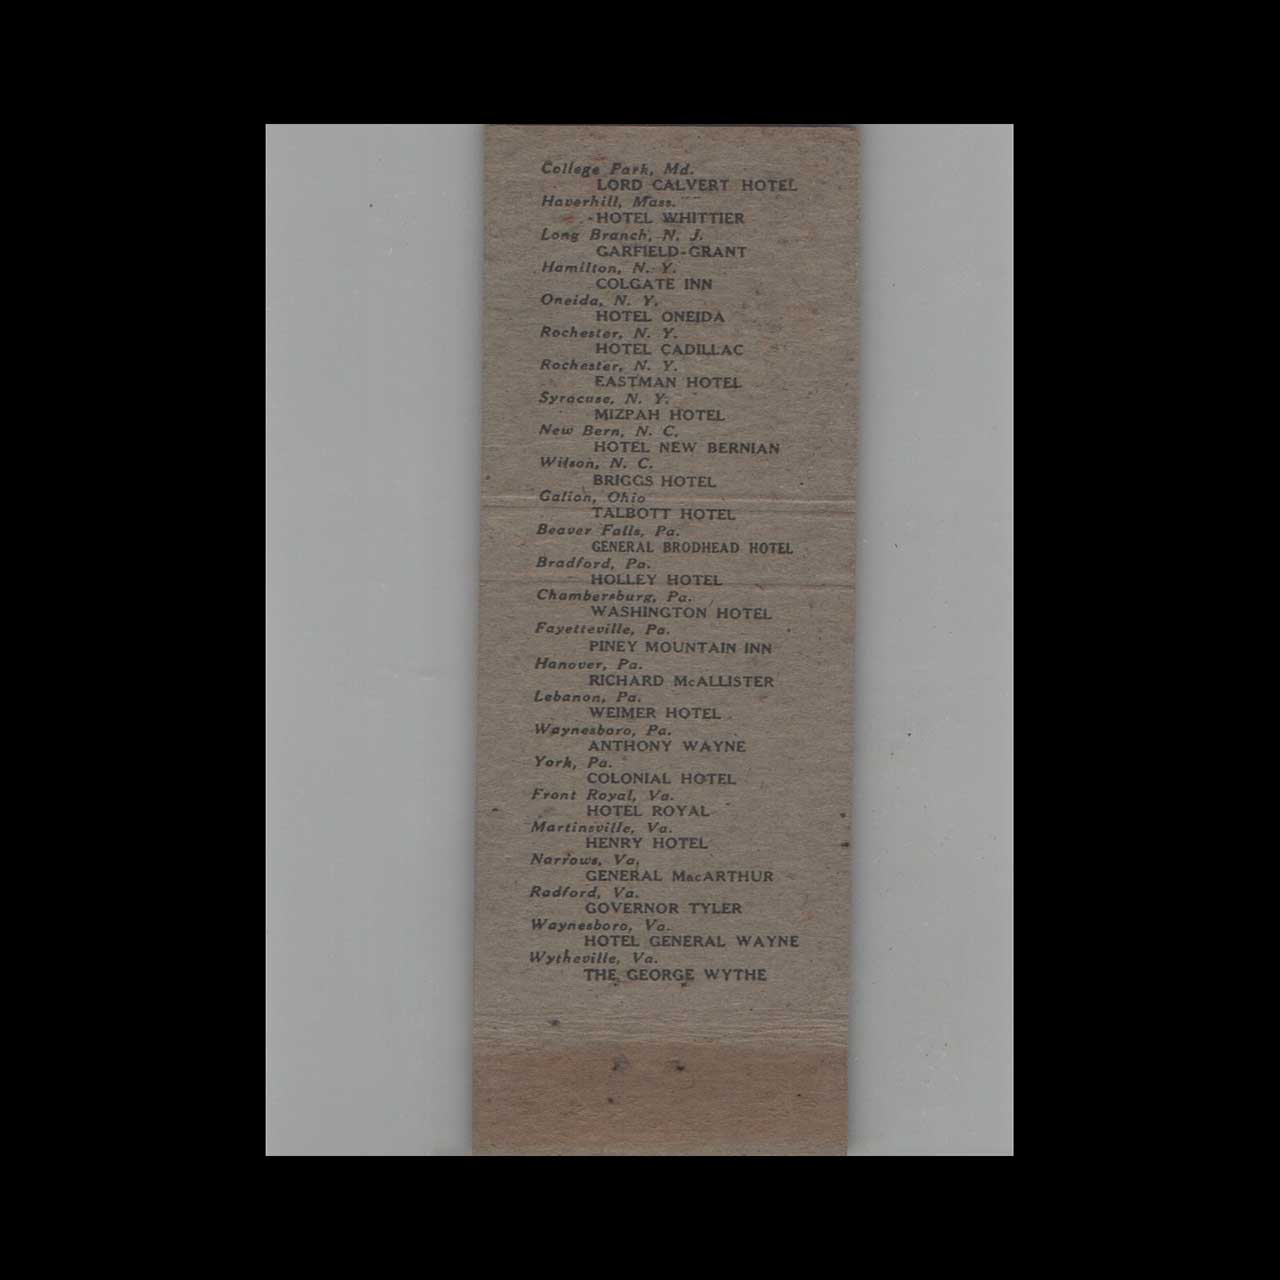 College Park, Md.
LORD CALVERT HOTEL
Haverhill, Mass.
HOTEL WHITTIER
Long Branch, N. J.
GARFIELD-GRANT
Hamilton, N. Y.
COLGATE INN
Oneida, N. Y.
HOTEL ONEIDA
Rochester, N. Y.
HOTEL CADILLAC
Rochester, N. Y.
EASTMAN HOTEL
Syracuse, N. Y.
MIZPAH HOTEL
New Bern, N. C.
HOTEL NEW BERNIAN
Wilson, N. C.
BRIGGS HOTEL
Galion, Ohio
TALBOTT HOTEL
Beaver Falls, Pa.
GENERAL BRODHEAD HOTEL
Bradford, Pa.
HOLLEY HOTEL
Chambersburg, Pa.
WASHINGTON HOTEL
Fayetteville, Pa.
PINEY MOUNTAIN INN
Hanover, Pa.
RICHARD McALLISTER
Lebanon, Pa.
WEIMER HOTEL
Waynesboro, Pa.
ANTHONY WAYNE
York, Pa.
COLONIAL HOTEL
Front Royal, Va.
HOTEL ROYAL
Martinsville, Va.
HENRY HOTEL
Narrows, Va.
GENERAL MacARTHUR
Radford, Va.
GOVERNOR TYLER
Waynesboro, Va.
HOTEL GENERAL WAYNE
Wytheville, Va.
THE GEORGE WYTHE